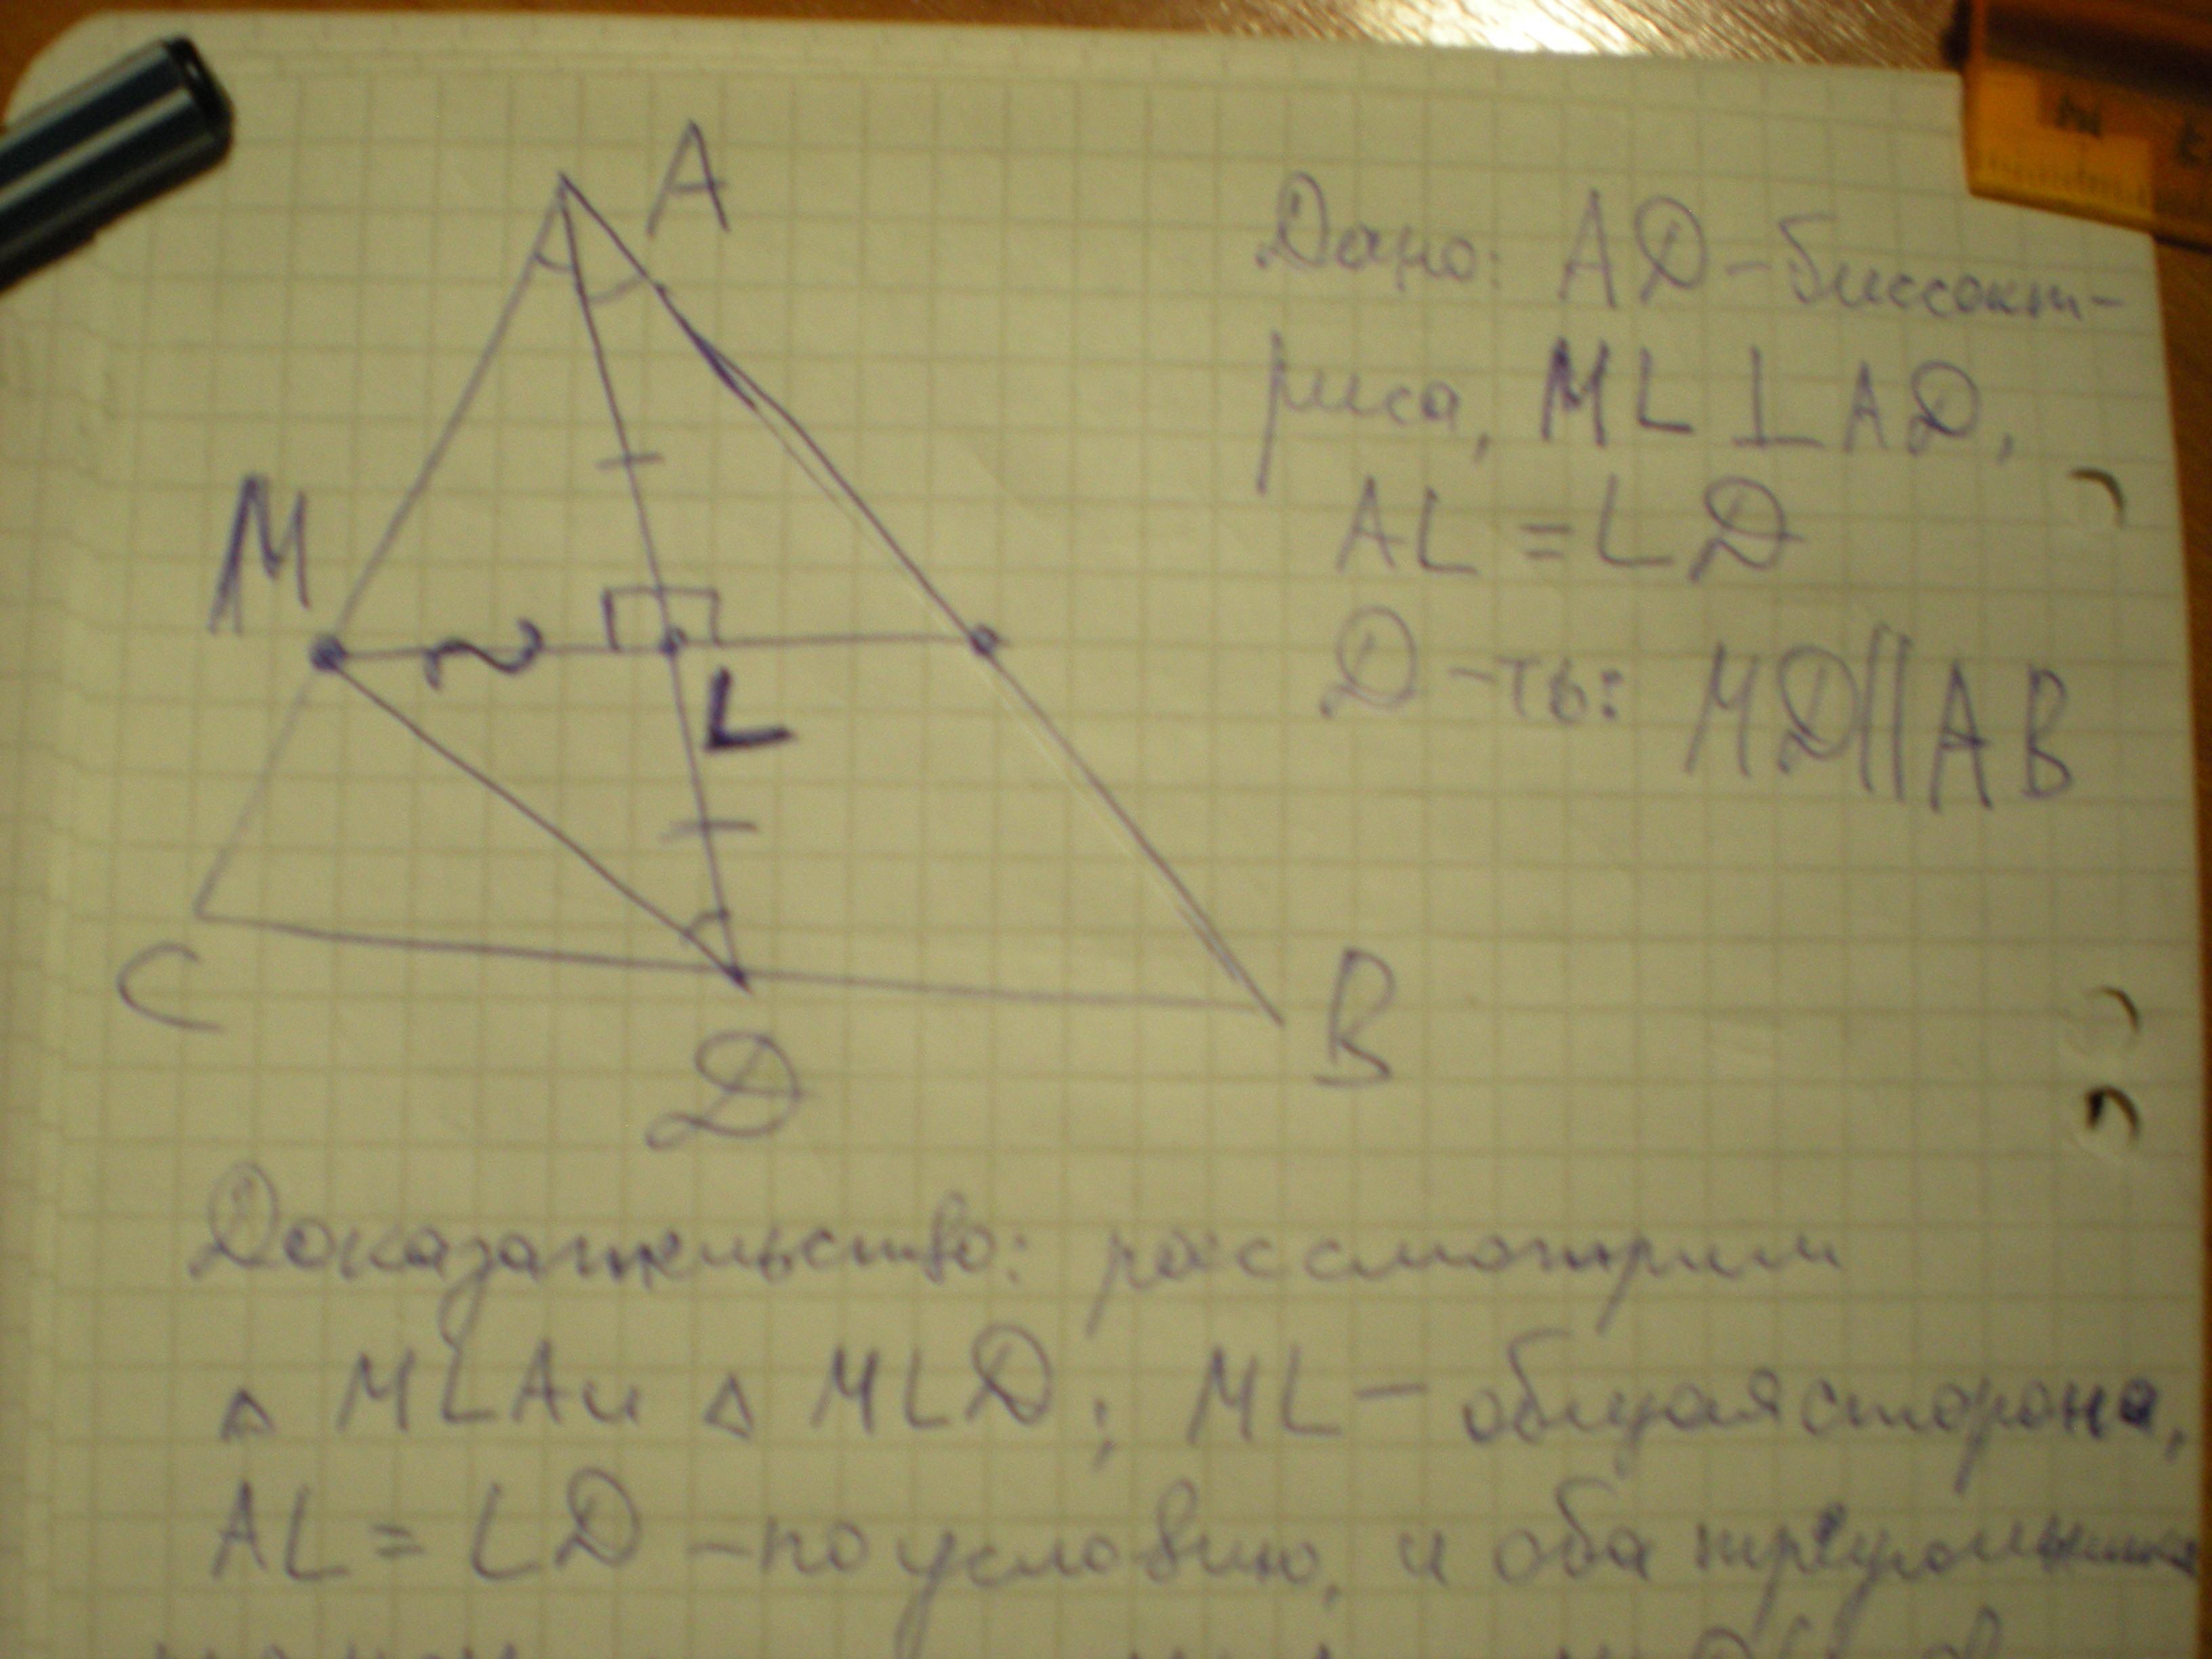 A
Дано: AD - биссект-
риса, ML ⊥ AD,
AL = LD
Д-ть: MD || AB
M
L
C
B
D
Доказательство: рассмотрим
△ MLA и △ MLD; ML - общая сторона,
AL = LD - по условию, и оба треугольника